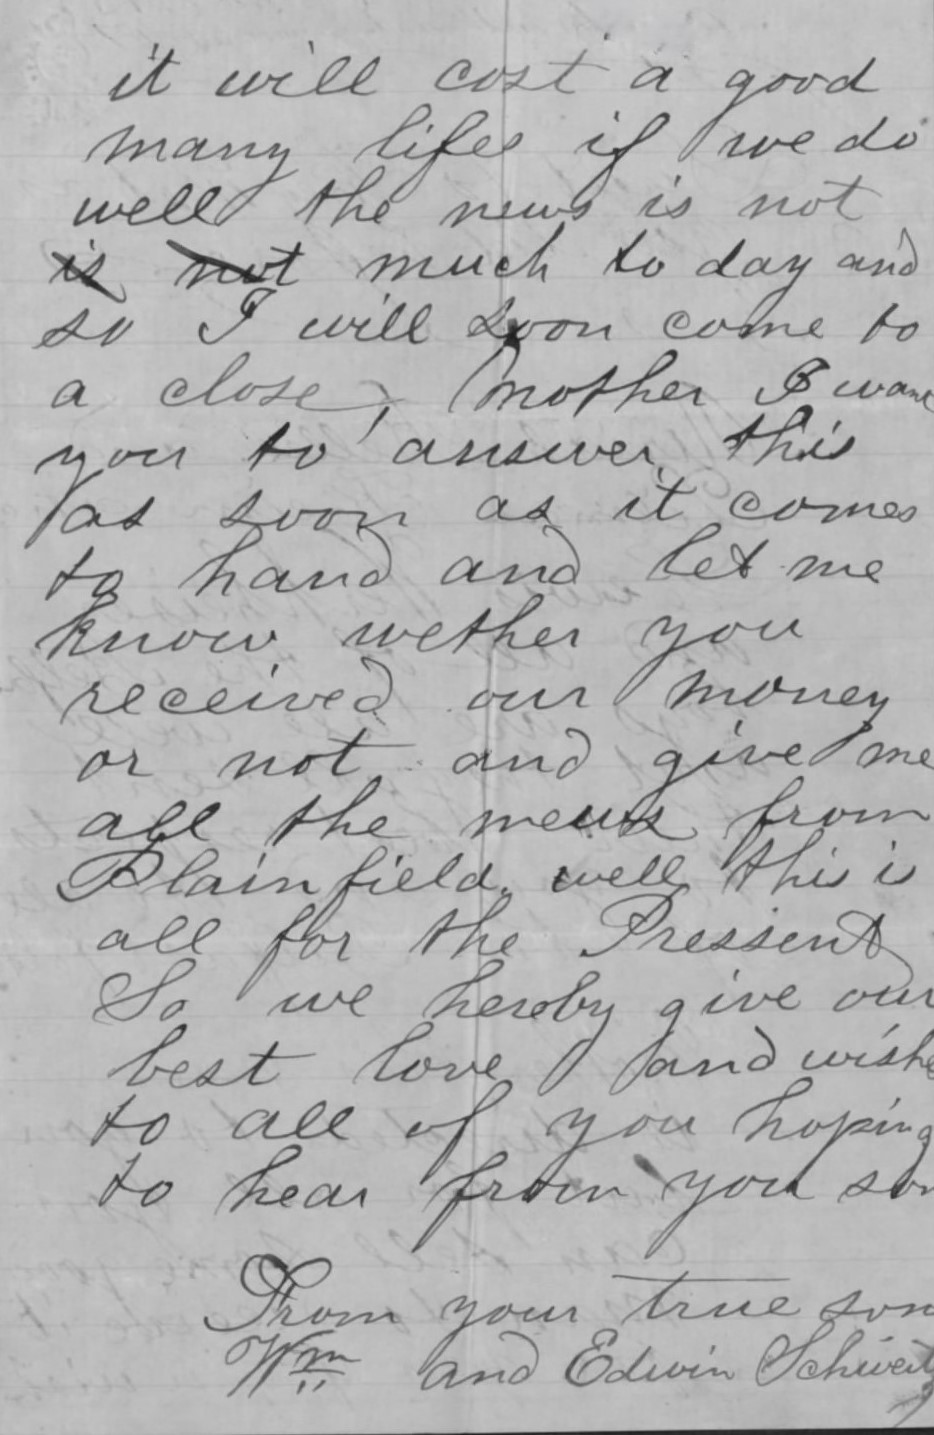 it will cost a good
many lifes if we do
well the news is not
is not much to day and
so I will soon come to
a close, Mother I wan
you to answer this
as soon as it comes
to hand and let me
know wether you
received our money
or not and give me
all the news from
Plainfield. well this is
all for the Pressent
So we hereby give our
best love and wishe
to all of you hoping
to hear from you soo
From your true son
Wm and Edwin